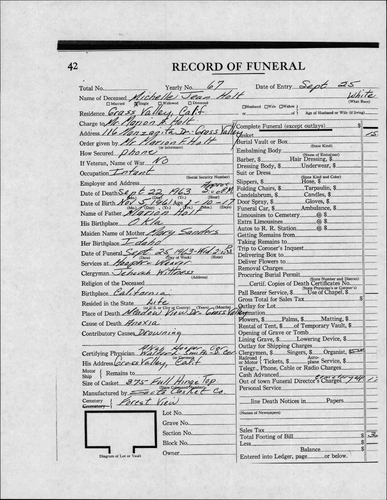 42 RECORD OF FUNERAL
Total No. Yearly No. 67 Date of Entry Sept 25
Name of Deceased Michelle Jean Holt White
Married Single Widowed Divorced Husband Wife Widow (What Race)
Residence Grass Valley, Calif or Age of Husband or Wife (if living)
Charge to Mr. Marion F. Holt
Address 116 Manzanita Dr. Grass Valley
Order given by Mr. Marion F. Holt
How Secured phone
If Veteran, of War NO
Occupation Infant
(Social Security Number)
Employer and Address
Date of Death Sept 22, 1963
Date of Birth Nov 5, 1961 Age 1-10-17
Name of Father Marion Holt
His Birthplace Okla
Maiden Name of Mother Mary Sanders
Her Birthplace Idaho
Date of Funeral Sept 25, 1963 Wed 2 P
Services at Hooper Weaver
Clergyman Jehovah Wittness
(Address)
Religion of the Deceased
Birthplace California
Resided in the State Life
Place of Death Meadow View Dr. Grass Valley
Cause of Death Anoxia
Contributory Causes Drowning
Certifying Physician
His Address Grass Valley, Calif
Motor Ship Remains to
Size of Casket Full Hinge Top
Manufactured by Casket Co.
Cemetery
Crematory Forest View
Lot No.
Grave No.
Section No.
Block No.
Owner
Diagram of Lot or Vault
Complete Funeral (except outlays) $
Casket 15
Burial Vault or Box
(State Kind)
Embalming Body
(State Name of Embalmer)
Barber, $ Hair Dressing, $
Dressing Body, $ Underwear, $
Suit or Dress
(State Kind and Color)
Slippers, $ Hose, $
Folding Chairs, $ Tarpaulin, $
Candelabrum, $ Candles, $
Door Spray, $ Gloves, $
Funeral Car, $ Ambulance, $
Limousines to Cemetery @ $
Extra Limousines @ $
Autos to R. R. Station @ $
Getting Remains from
Taking Remains to
Trip to Coroner's Inquest
Delivering Box to
Deliver Flowers to
Removal Charges
Procuring Burial Permit
(State Number and District)
Certif. Copies of Death Certificates No.
Pall Bearer Service, $ Use of Chapel, $
Gross Total for Sales Tax $
Outlay for Lot
Flowers, $ Palms, $ Matting, $
Rental of Tent, $ of Temporary Vault, $
Opening of Grave or Tomb
Lining Grave, $ Lowering Device, $
Outlay for Shipping Charges
Clergymen, $ Singers, $ Organist, $
Railroad or Motor Tickets, $ Aeroplane Service, $
Telegr., Phone, Cable or Radio Charges
Cash Advanced
Out of town Funeral Director's Charges
Personal Service
line Death Notices in Papers
(Names of Newspapers)
Sales Tax
Total Footing of Bill $
Less
Balance
Entered into Ledger, page or below.